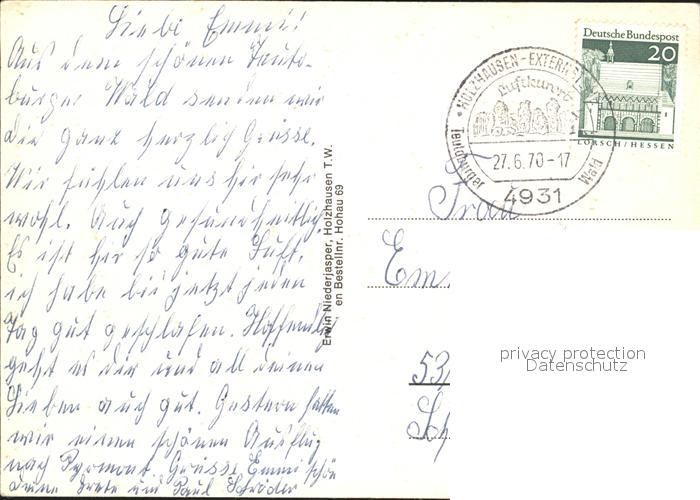 Liebe Emmi!
Aus dem schönen Teuto-
burger Wald senden wir
dir ganz herzlich Grüsse.
Wir fühlen uns hir sehr
wohl. Auch gesundheitlich,
Es ist hir so gute Luft,
ich habe bis jetzt jeden
Tag gut geschlafen. Hoffendlig
geht es dir und all deinen
Lieben auch gut. Gestern hatten
wir einen schönen Ausflug
nach Pyrmont. Grüsse Emmi schön
Deine Grete und Paul Schröder
Erwin Niederjasper, Holzhausen T.W.
en Bestellnr. Hohau 69
HOLZHAUSEN-EXTERNS
Luftkurort
27.6.70-17
Teutoburger Wald
4931
Deutsche Bundespost
20
LORSCH/HESSEN
Frau
Em
53
Sch
privacy protection
Datenschutz